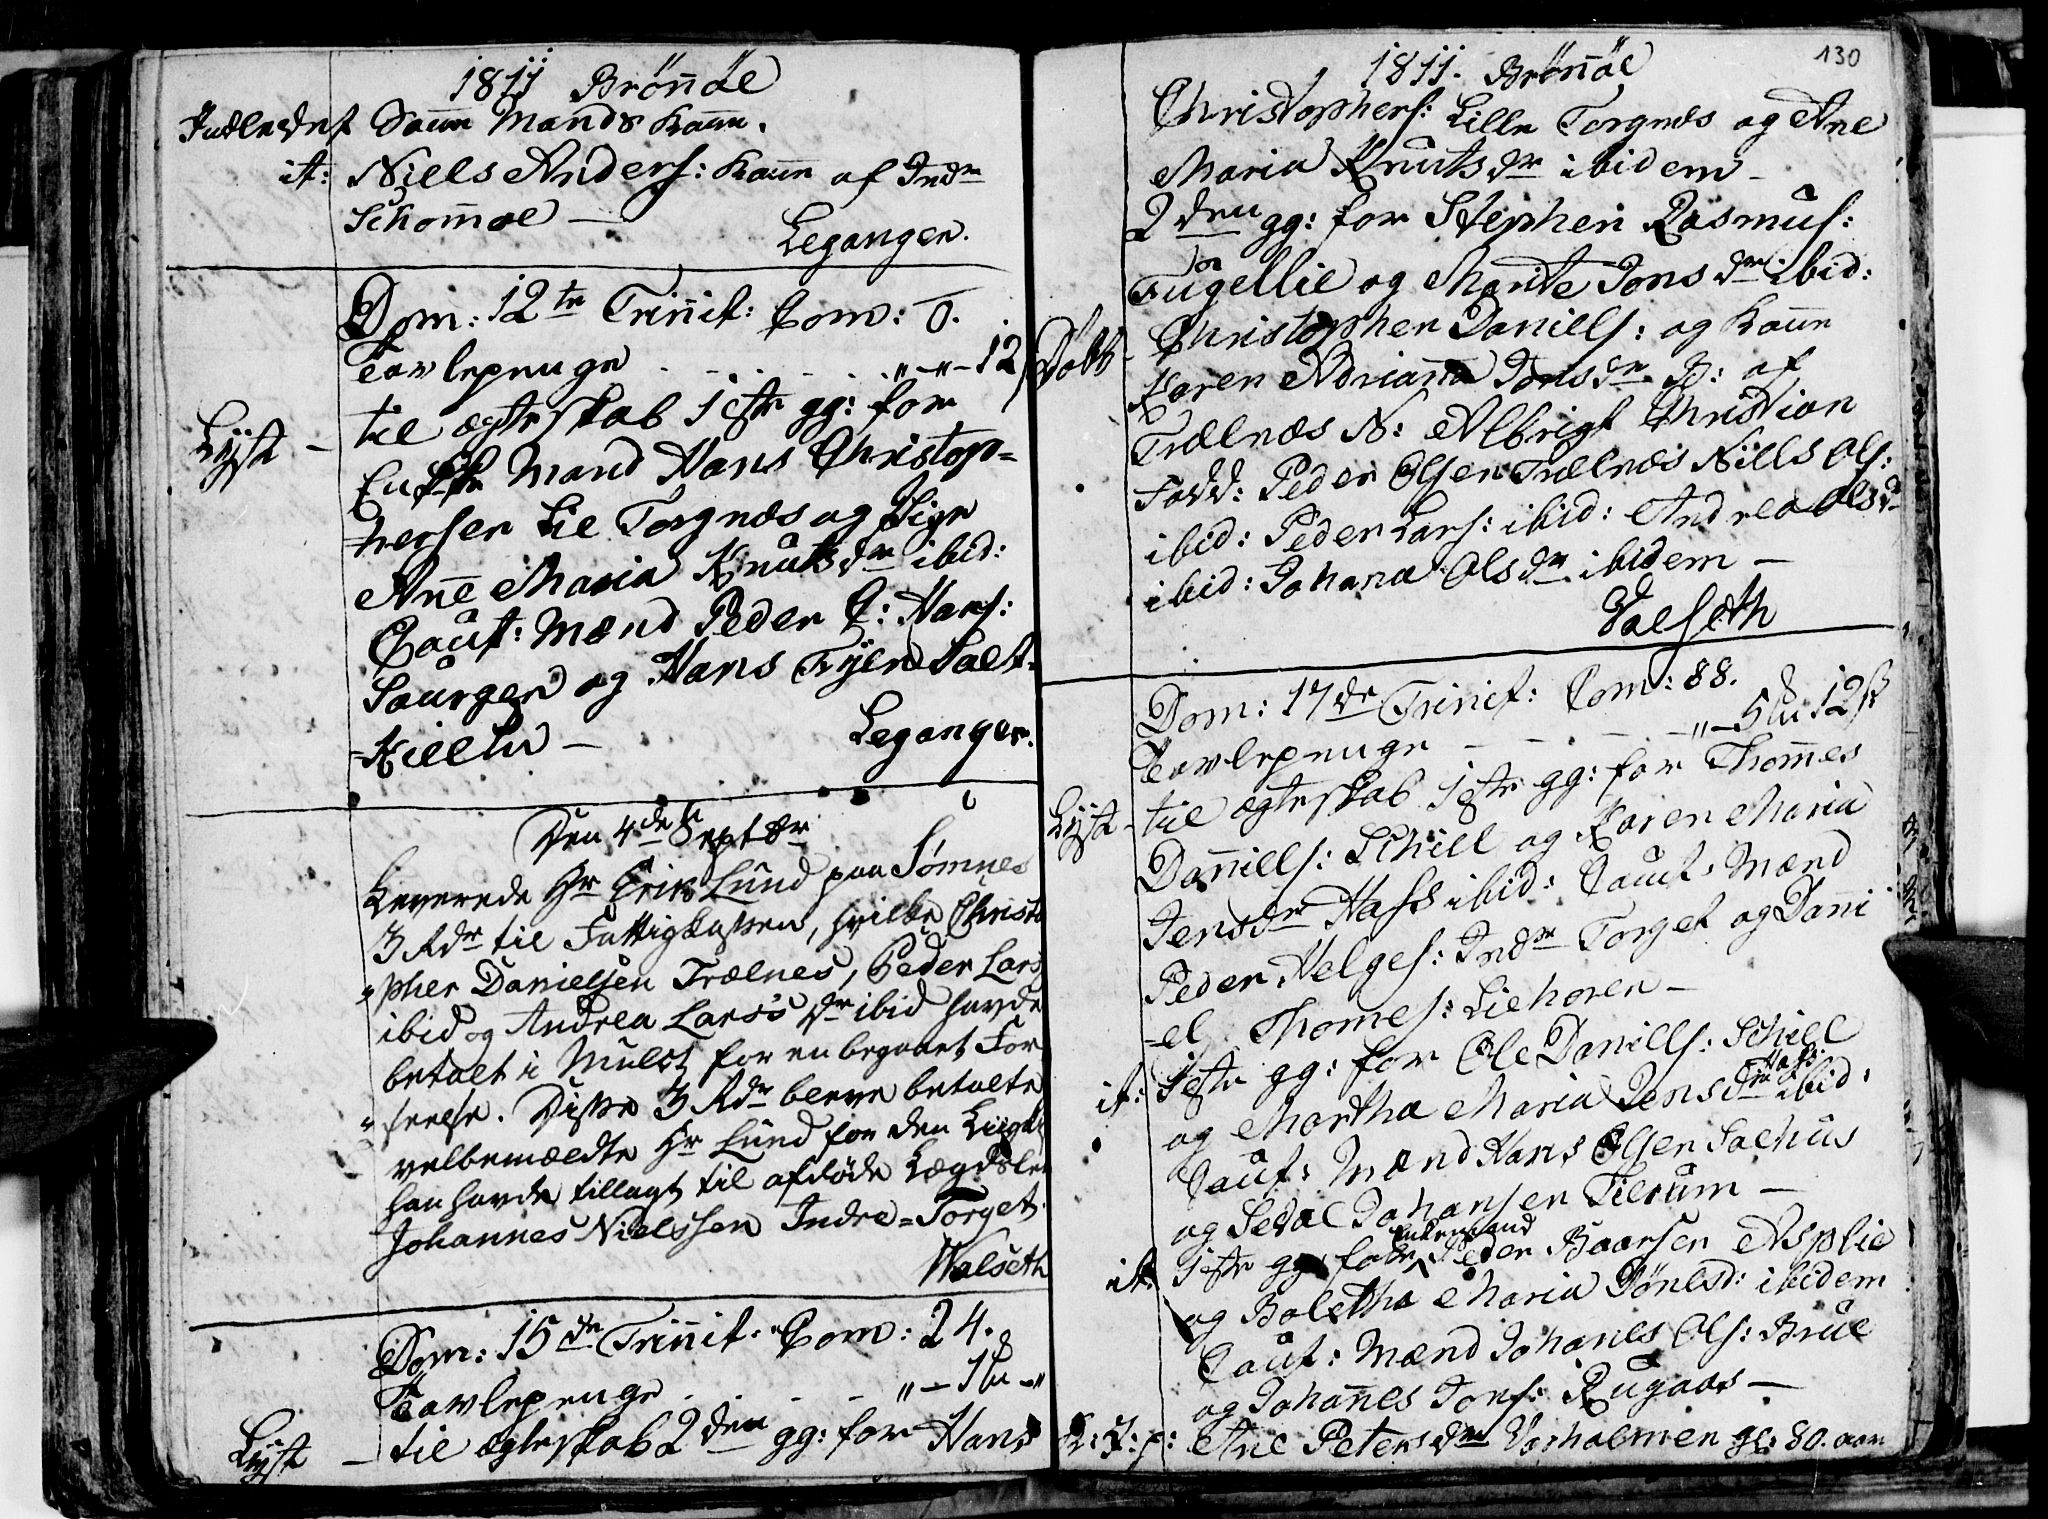 1811 Brönnöe
Indledet Samme Mands Kone.
it: Niels Anders: Kone af Indre
Schomoe —
Leganger.
Dom: 12te Trinit: Com: 0.
Tavlepenge . . . . . „ - „ - 12
Lyst — til ægteskab 1ste gg: for
Enke Mand Hans Christop=
hersen Lie Torgnæs og Pige
Ane Maria Knutsdr ibid:
Caut: Mænd Peder C: Hans:
Saurgen og Hans Tyer Salt
=Kielln —
Leganger.
Den 4de Septbr
Leverede Hr Erik Lund paa Sømnes
3 Rdr til Fattigkassen, hvilke Christo
=pher Danielsen Trælnes, Peder Lars
ibid og Andrea Larsdr ibid havde
betalt i Mulct for en begaaet For
=seelse. Disse 3 Rdr bleve betalte
velbemældte Hr Lund for den Liigk
han havde tillagt til afdøde Lægdsle
Johannes Nielssen Indre=Torget.
Walseth
Dom: 15de Trinit: Com: 24.
Tavlepenge . . . — „ - 1 „ - „
Lyst — til ægteskab 2den gg: for Hans
130
1811. Brönnöe
Christophers: Lille Torgnæs og Ane
Maria Knutsdr ibidem —
2den gg: for Stephen Rasmus:
Fugellie og Marite Jonsdr ibid:
Döbt — Christopher Daniels: og Kone
Karen Adriana Jonsdr B: af
Trælnæs N: Albrigt Christian
Fadd: Peder Olsen Trælnæs Nills Ols:
ibid: Peder Lars: ibid: Andrea Olsdr
ibid: Johana Olsdr ibidem —
Valseth
Dom: 17de Trinit: Com: 88.
Tavlepenge — — — — „ - 5 12 ß
Lyst — til ægteskab 1ste gg: for Thomes
Daniells: Schiell og Karen Maria
Jensdr Hafs ibid: Caut: Mænd
Peder Helges: Indre Torget og Dani
=el Thomes: Liehoren —
it: 1ste gg: for Ole Daniells: Schiell
og Martha Maria Jensdr Hafs ibid:
Caut: Mænd Hans Olsen Salhus
og Sedal Johansen Tilrum —
it: 1ste gg: for Enkemand Peder Baarsen Asplie
og Boletha Maria Jönesd: ibidem
Caut: Mænd Johanes Ols: Brue
og Johannes Jons: Rugaas —
L: J: p: Ane Petersdr Vasholmen gl: 80. aar